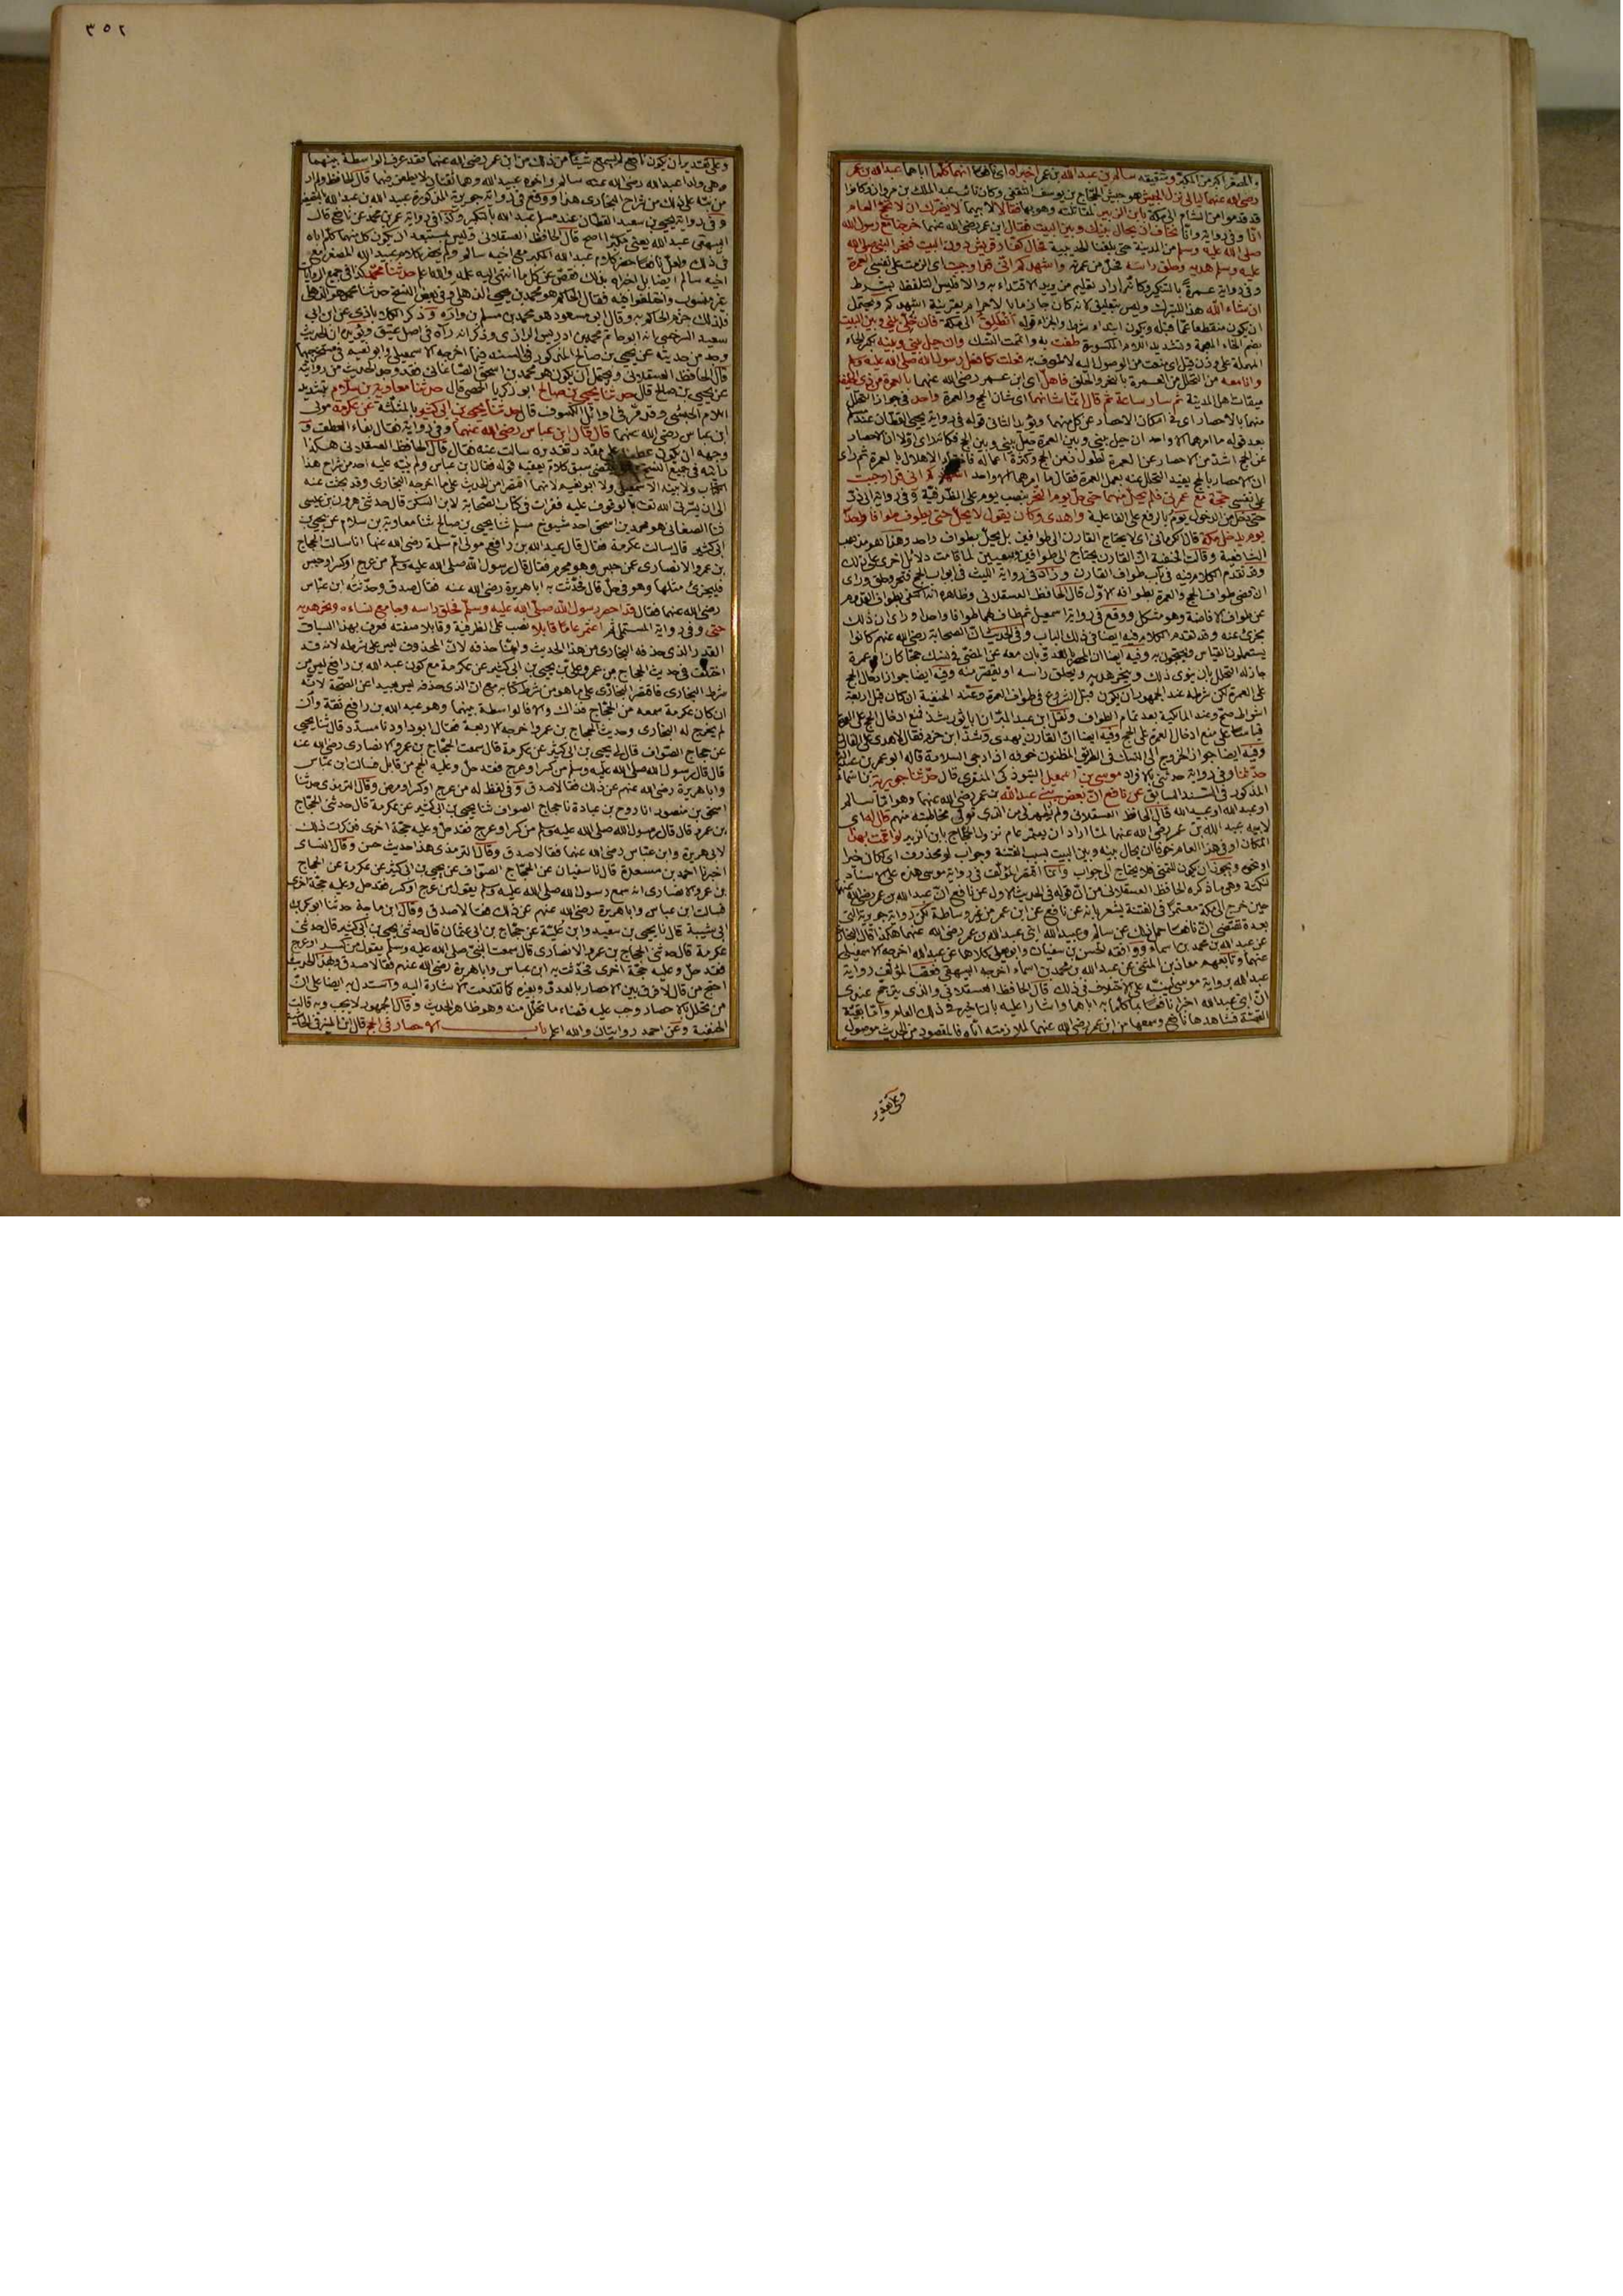 والمصغر اكبر من المكبر وشقيقه سالم بن عبد الله بن عمر اخبراه اى نافعا انهما كلما اباهما عبد الله بن عمر
رضى الله عنهما ليالى نزل الجيش هو جيش الحجاج بن يوسف الثقفى وكان نائب عبد الملك بن مروان وكانوا
قد قدموا من الشام الى مكة بابن الزبير لمقاتلته وهو بها فقالا لابيهما لا يضرك ان لا تحج العام
انا وفى رواية وانا نخاف ان يحال بينك وبين البيت فقال ابن عمر رضى الله عنهما خرجنا مع رسول الله
صلى الله عليه وسلم من المدينة حتى بلغنا الحديبية فحال كفار قريش دون البيت فنحر النبى صلى الله
عليه وسلم هديه وحلق راسه فحل من عمرته واشهدكم انى قد اوجبت اى الزمت على نفسى العمرة
وفى رواية عمرة بالتنكير وكانه اراد تعليم من يريد الاقتداء به والا فليس التلفظ بشرط
ان شاء الله هذا للتبرك وليس بتعليق لانه كان جازما بالاحرام بقرينة اشهدكم ويحتمل
ان يكون منقطعا عما قبله ويكون ابتداء شرط والجزاء قوله انطلق الى مكة فان خلى بينى وبين البيت
بضم الخاء المعجمة وتشديد اللام المكسورة طفت به واتممت النسك وان حيل بينى وبينه بكسر الحاء
المهملة على وزن قيل اى منعت من الوصول اليه لاطوف به فعلت كما فعل رسول الله صلى الله عليه وسلم
وانا معه من التحلل من العمرة بالنحر والحلق فاهل اى ابن عمر رضى الله عنهما بالعمرة من ذى الحليفة
ميقات اهل المدينة ثم سار ساعة ثم قال انما شانهما اى شان الحج والعمرة واحد فى جواز التحلل
منهما بالاحصار اى فى امكان الاحصار عن كل منهما ويؤيد الثانى قوله فى رواية يحيى القطان عندكم
بعد قوله ما امرهما الا واحد ان حيل بينى وبين العمرة حيل بينى وبين الحج فكانه راى اولا ان الاحصار
عن الحج اشد من الاحصار عن العمرة لطول زمن الحج وكثرة اعماله فاختار الاهلال بالعمرة ثم راى
ان الاحصار بالحج يفيد التحلل عنه بعمل العمرة فقال ما امرهما الا واحد اشهدكم انى قد اوجبت
على نفسى حجة مع عمرتى فلم يحل منهما حتى حل يوم النحر بنصب يوم على الظرفية وفى رواية ابى ذر
حتى دخل من الدخول يوم بالرفع على الفاعلية واهدى وكان يقول لا يحل حتى يطوف طوافا واحدا
يوم يدخل مكة قال الكرمانى اى لا يحتاج القارن الى طوافين بل يحل بطواف واحد وهذا هو مذهب
الشافعية وقالت الحنفية ان القارن يحتاج الى طوافين وسعيين لما قامت دلائل اخرى على ذلك
وقد تقدم الكلام فيه فى باب طواف القارن وزاد فى رواية الليث فى ابواب الحج فنحر وحلق وراى
ان قد قضى طواف الحج والعمرة بطوافه الاول قال الحافظ العسقلانى وظاهره انه اكتفى بطواف القدوم
عن طواف الافاضة وهو مشكل ووقع فى رواية اسمعيل ثم طاف لهما طوافا واحدا وراى ان ذلك
يجزئ عنه وقد تقدم الكلام فيه ايضا فى ذلك الباب وفى الحديث ان الصحابة رضى الله عنهم كانوا
يستعملون القياس ويحتجون به وفيه ايضا ان المحصر بالعدو بان معه عن المضى فى نسكه حجا كان او عمرة
جاز له التحلل بان ينوى ذلك وينحر هديه ويحلق راسه او يقصر منه وفيه ايضا جواز ادخال الحج
على العمرة لكن شرطه عند الجمهور ان يكون قبل الشروع فى طواف العمرة وعند الحنفية ان كان قبل اربعة
اشواط صح وعند المالكية بعد تمام الطواف ونقل ابن عبد البر ان ابا ثور شذ فمنع ادخال الحج على العمرة
قياسا على منع ادخال العمرة على الحج وفيه ايضا ان القارن يهدى وشذ ابن حزم فقال لا هدى على القارن
وفيه ايضا جواز الخروج الى النسك فى الطريق المظنون خوفه اذا رجى السلامة قاله ابو عمر بن عبد البر
حدثنا وفى رواية حدثنى بالافراد موسى بن اسمعيل التبوذكى المنقرى قال حدثنا جويرية بن اسماء
المذكور فى السند السابق عن نافع ان بعض بنى عبد الله بن عمر رضى الله عنهما وهو اما سالم
او عبد الله او عبيد الله قال الحافظ العسقلانى ولم يظهر لى من الذى تولى مخاطبته منهم قال له اى
لابيه عبد الله بن عمر رضى الله عنهما لما اراد ان يعتمر عام نزول الحجاج بابن الزبير لو اقمت بهذا
المكان او فى هذا العام خوفا ان يحال بينه وبين البيت بسبب الفتنة وجواب لو محذوف اى لكان خيرا
او نحوه ويجوز ان يكون للتمنى فلا يحتاج الى جواب وانما اقتصر المؤلف فى رواية موسى هذه على الاسناد
لنكتة وهى ما ذكره الحافظ العسقلانى من ان قوله فى الحديث الاول عن نافع ان عبد الله بن عمر رضى الله عنهما
حين خرج الى مكة معتمرا فى الفتنة يشعر بانه عن نافع عن ابن عمر من غير واسطة لكن رواية جويرية التى
بعده تقتضى ان نافعا حمل ذلك عن سالم وعبيد الله ابنى عبد الله بن عمر رضى الله عنهما هكذا قال البخارى
عن عبد الله بن محمد بن اسماء ووافقه الحسن بن سفيان وابو يعلى كلاهما عن عبد الله اخرجه الاسمعيلى
عنهما وتابعهم معاذ بن المثنى عن عبد الله بن محمد بن اسماء اخرجه البيهقى فعقب المؤلف رواية
عبد الله برواية موسى لينبه على الاختلاف فى ذلك قال الحافظ العسقلانى والذى يترجح عندى
ان ابنى عبد الله اخبرا نافعا بما كلما به اباهما واشارا عليه بالتاخير فى ذلك العام واما بقية
القصة فشاهدها نافع وسمعها من ابن عمر رضى الله عنهما لملازمته اياه فالمقصود من الحديث موصول
وعلى تقدير
٣٥٢
وعلى تقدير ان يكون نافع لم يسمع شيئا من ذلك من ابن عمر رضى الله عنهما فقد عرف الواسطة بينهما
وهى ولدا عبد الله رضى الله عنه سالم واخوه عبيد الله وهما ثقتان لا يطعن فيهما قال الحافظ ولم ار
من نبه على ذلك من شراح البخارى هذا ووقع فى رواية جويرية المذكورة عبيد الله بن عبد الله بالتصغير
وفى رواية يحيى بن سعيد القطان عند مسلم عبد الله بالتكبير وكذا فى رواية عمر بن محمد عن نافع قال
البيهقى عبد الله يعنى مكبرا اصح قال الحافظ العسقلانى وليس بمستبعد ان يكون كل منهما كلم اباه
فى ذلك ولعل نافعا حضر كلام عبد الله المكبر مع اخيه سالم ولم يحضر كلام عبيد الله المصغر مع
اخيه سالم ايضا بل اخبراه بذلك فقص عن كل ما انتهى اليه علمه والله اعلم حدثنا محمد كذا فى جميع الروايات
غير منسوب واختلفوا فيه فقال الحاكم هو محمد بن يحيى الذهلى وفى بعض النسخ حدثنا محمد هو الذهلى
فلذلك جزم الحاكم به وقال ابو مسعود هو محمد بن مسلم بن وارة وذكر الكلاباذى عن ابن ابى
سعيد السرخسى انه ابو حاتم محمد بن ادريس الرازى وذكر انه رآه فى اصل عتيق ويؤيده ان الحديث
وجد من حديثه عن يحيى بن صالح المذكور فى السند فيما اخرجه الاسمعيلى وابو نعيم فى مستخرجيهما
قال الحافظ العسقلانى ويحتمل ان يكون هو محمد بن اسحق الصاغانى فقد وجد الحديث من روايته
عن يحيى بن صالح قال حدثنا يحيى بن صالح ابو زكريا الحمصى قال حدثنا معاوية بن سلام بتشديد
اللام الحبشى وقد مر فى اوائل الكسوف قال حدثنا يحيى بن ابى كثير بالمثلثة عن عكرمة مولى
ابن عباس رضى الله عنهما قال قال ابن عباس رضى الله عنهما وفى رواية فقال بفاء العطف و
وجهه ان يكون عطفا على مقدر تقديره سالت عنه فقال قال الحافظ العسقلانى هكذا
رايته فى جميع النسخ يقتضى سبق كلام يعقبه قوله فقال ابن عباس ولم ينبه عليه احد من شراح هذا
الكتاب ولا بينه الاسمعيلى ولا ابو نعيم لانهما اقتصرا من الحديث على ما اخرجه البخارى وقد بحثت عنه
الى ان يسر لى الله تعالى الوقوف عليه فقرات فى كتاب الصحابة لابن السكن قال حدثنى هرون بن عيسى
ثنا الصغانى هو محمد بن اسحق احد شيوخ مسلم ثنا يحيى بن صالح ثنا معاوية بن سلام عن يحيى بن
ابى كثير قال سالت عكرمة فقال قال عبد الله بن رافع مولى ام سلمة رضى الله عنها انا سالت الحجاج
بن عمرو الانصارى عن حبس وهو محرم فقال قال رسول الله صلى الله عليه وسلم من عرج او كسر او حبس
فليجزئ مثلها وهو فى حل قال فحدثت به ابا هريرة رضى الله عنه فقال صدق وحدثته ابن عباس
رضى الله عنهما فقال قد احصر رسول الله صلى الله عليه وسلم فحلق راسه وجامع نساءه ونحر هديه
حتى وفى رواية المستملى ثم اعتمر عاما قابلا نصب على الظرفية وقابلا صفته فعرف بهذا السياق
القدر الذى حذفه البخارى من هذا الحديث وانما حذفه لان المحذوف ليس على شرطه لانه قد
اختلف فى حديث الحجاج بن عمرو على يحيى بن ابى كثير عن عكرمة مع كون عبد الله بن رافع ليس من
شرط البخارى فاقتصر البخارى على ما هو من شرط كتابه مع ان الذى حذفه ليس ببعيد عن الصحة لانه
ان كان عكرمة سمعه من الحجاج فذاك والا فالواسطة بينهما وهو عبد الله بن رافع ثقة وان
لم يخرج له البخارى وحديث الحجاج بن عمرو اخرجه الاربعة فقال ابو داود نا مسدد قال ثنا يحيى
عن حجاج الصواف قال لى يحيى بن ابى كثير عن عكرمة قال سمعت الحجاج بن عمرو الانصارى رضى الله عنه
قال قال رسول الله صلى الله عليه وسلم من كسر او عرج فقد حل وعليه الحج من قابل فسالت ابن عباس
وابا هريرة رضى الله عنهم عن ذلك فقالا صدق وفى لفظ له من عرج او كسر او مرض وقال الترمذى حدثنا
اسحق بن منصور انا روح بن عبادة نا حجاج الصواف ثنا يحيى بن ابى كثير عن عكرمة قال حدثنى الحجاج
بن عمرو قال قال رسول الله صلى الله عليه وسلم من كسر او عرج فقد حل وعليه حجة اخرى فذكرت ذلك
لابى هريرة وابن عباس رضى الله عنهما فقالا صدق وقال الترمذى هذا حديث حسن وقال النساى
اخبرنا احمد بن مسعدة قال نا سفيان عن الحجاج الصواف عن يحيى بن ابى كثير عن عكرمة عن الحجاج
بن عمرو الانصارى انه سمع رسول الله صلى الله عليه وسلم يقول من عرج او كسر فقد حل وعليه حجة اخرى
فسالت ابن عباس وابا هريرة رضى الله عنهم عن ذلك فقالا صدق وقال ابن ماجة حدثنا ابو بكر بن
ابى شيبة قال نا يحيى بن سعيد وابن علية عن حجاج بن ابى عثمان قال حدثنى يحيى بن ابى كثير قال حدثنى
عكرمة قال حدثنى الحجاج بن عمرو الانصارى قال سمعت النبى صلى الله عليه وسلم يقول من كسر او عرج
فقد حل وعليه حجة اخرى فحدثت به ابن عباس وابا هريرة رضى الله عنهم فقالا صدق وبهذا الحديث
احتج من قال لا فرق بين الاحصار بالعدو وبغيره كما تقدمت الاشارة اليه واستدل به ايضا على ان
من تحلل بالاحصار وجب عليه قضاء ما تحلل منه وهو ظاهر الحديث وقال الجمهور لا يجب وبه قالت
الحنفية وعن احمد روايتان والله اعلم باب الاحصار فى الحج قال ابن المنير فى الحاشية